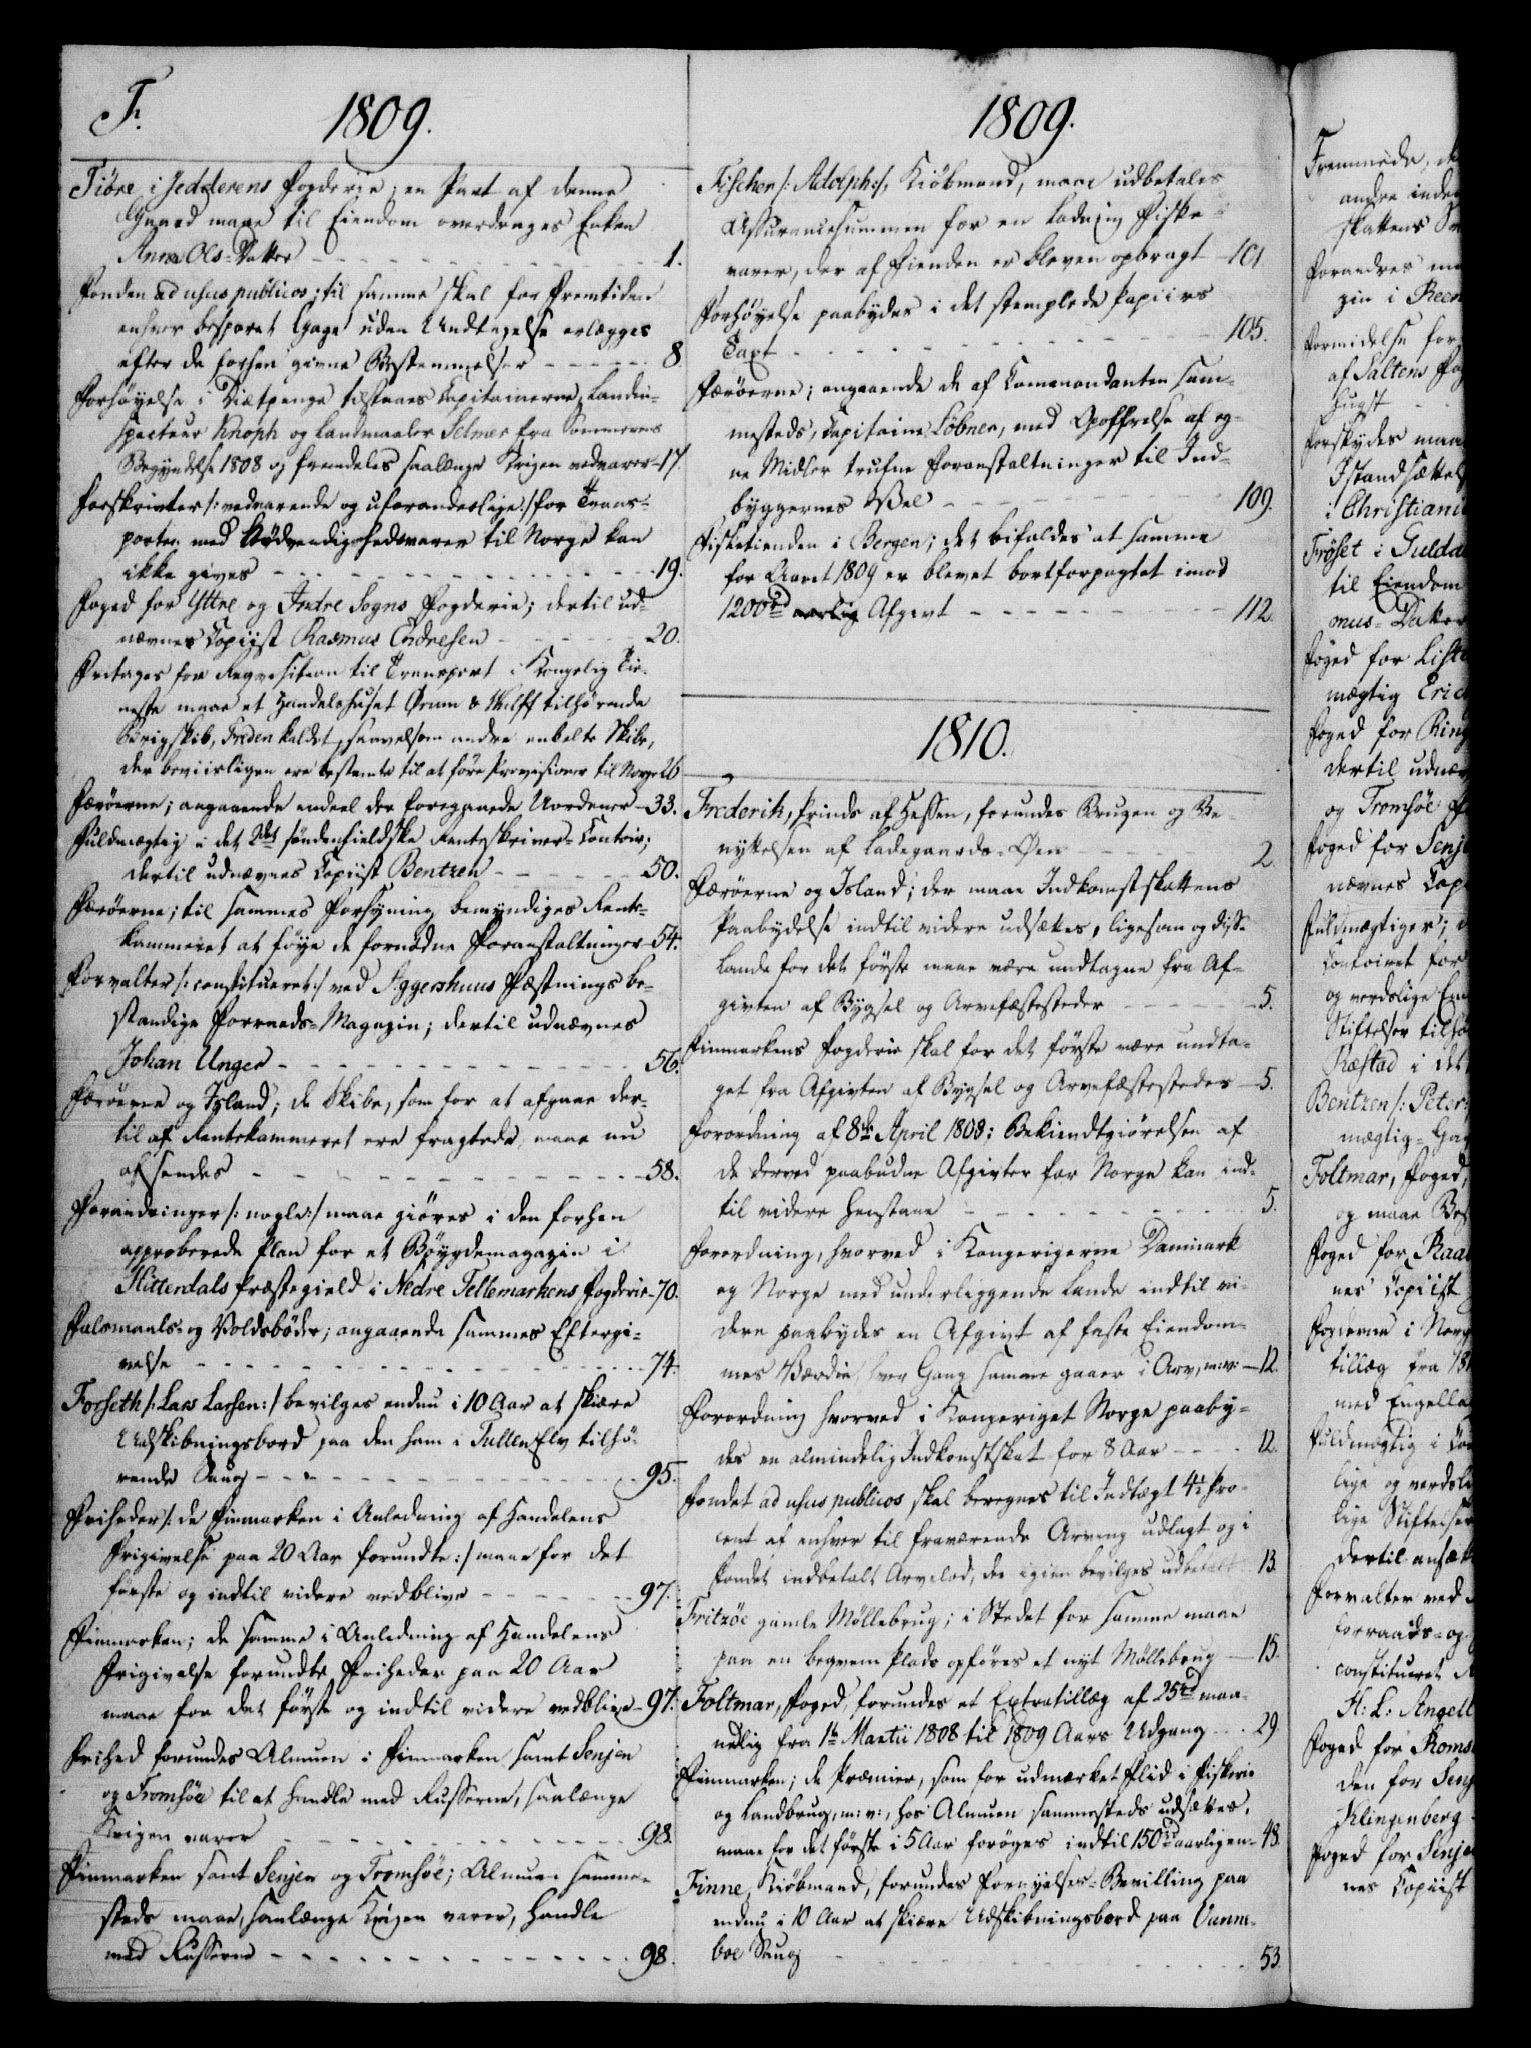 F.
1809.
Fiöre i Jedderens Fogderie; en Part af denne
Gaard maae til Eiendom overdrages Enken
Anna Ols-Datter - - - 1.
Fonden ad usus publicos; til samme skal for Fremtiden
enhver besparet Gage uden Undtagelse erlægges
efter de forhen givne Bestemmelser - - - 8
Forhöyelse i Diætpenge tilstaaes Capitainerne, Landin-
specteur Knoph og Landmaaler Selmer fra Sommerens
Begyndelse 1808 og fremdeles saalænge Krigen vedvarer - 17.
Forskrivter /: vedvarende og uforanderlige :/ for Trans-
porten med Nödvendighedsvarer til Norge kan
ikke gives - - - 19.
Foged for Yttre og Indre Sogns Fogderie; dertil ud-
nævnes Copiist Rasmus Endresen - - - 20.
Fritages for Reqvisition til Transport i Kongelig Tie-
neste maae et Handelshuset Örum & Wulff tilhörende
Brigskib, Freden kaldet, saavelsom andre enkelte Skibe,
der beviisligen ere bestemte til at före Provisioner til Norge 26
Færöerne; angaaende endeel der foregaaede Uordener - 33.
Fuldmægtig i det 2det söndenfieldske Renteskriver-Contoir;
dertil udnævnes Copiist Bentzen - - - 50.
Færöerne; til sammes Forsyning bemyndiges Rente-
kammeret at föye de fornödne Foranstaltninger - 54.
Forvalter /: constitueret :/ ved Aggershuus Fæstnings be-
standige Forraads-Magazin; dertil udnævnes
Johan Unger - - - 56.
Færöerne og Island; de Skibe, som for at afgaae der-
til af Rentekammeret ere fragtede, maae nu
afsendes - - - 58.
Forandringer /: nogle :/ maae giöres i den forhen
approberede Plan for et Böygdemagazin i
Hitterdals Præstegield i Nedre Tellemarkens Fogderie - 70.
Falsmaals- og Voldsböder; angaaende sammes Eftergi-
velse - - - 74.
Forseth /: Lars Larsen :/ bevilges endnu i 10 Aar at skiære
Udskibningsbord paa den ham i Tullen Elv tilhö-
rende Saug - - - 95.
Friheder /: de Finmarken i Anledning af Handelens
Frigivelse paa 20 Aar forundte :/ maae for det
förste og indtil videre vedblive - - - 97.
Finmarken; de samme i Anledning af Handelens
Frigivelse forundte Friheder paa 20 Aar
maae for det förste og indtil videre vedblive - 97.
Frihed forundes Almuen i Finmarken samt Senjen
og Tromsöe til at handle med Russerne, saalænge
Krigen varer - - - 98.
Finmarken samt Senjen og Tromsöe; Almuen samme-
steds maae, saalænge Krigen varer, handle
med Russerne - - - 98.
1809.
Fischer /: Adolph :/, Kiöbmand, maae udbetales
Assurancesummen for en Ladning Fiske-
varer, der af Fienden er bleven opbragt - 101
Forhöyelse paabydes i det stemplede Papiirs
Taxt - - - 105.
Færöerne; angaaende de af Commandanten sam-
mesteds, Capitaine Löbner, med Opoffrelse af eg-
ne Midler trufne Foranstaltninger til Ind-
byggernes Vel - - - 109.
Fisketienden i Bergen; det bifaldes at samme
for Aaret 1809 er blevet bortforpagtet imod
1200 rd aarlig Afgivt - - - 112.
1810.
Frederik, Prinds af Hessen, forundes Brugen og Be-
nyttelsen af Ladegaards-Öen - - - 2.
Færöerne og Island; der maae Indkomstskattens
Paabydelse indtil videre udsættes, ligesom og disse
Lande for det förste maae være undtagne fra Af-
givten af Bygsel og Arvefæstesteder - - - 5.
Finmarkens Fogderie skal for det förste være undta-
get fra Afgivten af Bygsel og Arvefæstesteder - 5.
Forordning af 8de April 1808; Bekiendtgiörelsen af
de derved paabudne Afgivter for Norge kan ind-
til videre henstaae - - - 5.
Forordning, hvorved i Kongerigerne Danmark
og Norge med underliggende Lande indtil vi-
dere paabydes en Afgivt af faste Eiendom-
mes Værdie, hver Gang samme gaaer i Arv, m: v: - 12.
Forordning hvorved i Kongeriget Norge paaby-
des en almindelig Indkomstskat for 8 Aar - - - 12.
Fondet ad usus publicos skal beregnes til Indtægt 4 1/2 Pro-
cent af enhver til fraværende Arving udlagt og i
Fondet indbetalt Arvelod, der igien bevilges udbetalt - 13.
Fritzöe gamle Möllebrug; i Stedet for samme maae
paa en beqvem Plads opföres et nyt Möllebrug - 15.
Foltmar, Foged, forundes et Extratillæg af 25 rd maa-
nedlig fra 1te Martii 1808 til 1809 Aars Udgang - - 29
Finmarken; de Præmier, som for udmærket Flid i Fiskerie
og Landbrug, m: v:, hos Almuen sammesteds udsættes,
maae for det förste i 5 Aar foröges indtil 150 rd aarligen - 48.
Finne, Kiöbmand, forundes Fornyelses-Bevilling paa
endnu i 10 Aar at skiære Udskibningsbord paa Vanne-
boe Saug - - - 53.
Fremmede, de
andre inden
skattens
Forandres ma
zin i
Formidelse for
af Saltens Fog
Forskydes maa
Istandsættels
i Christiani
Fröset i Gulda
til Eiendom
mus-Datter
Foged for Liste
mægtig Eric
Foged for Ring
dertil udnæv
og Tromsöe
Foged for Senje
nævnes Cop
Fuldmægtiger;
Contoiret for
og verdslige
Stiftelser tilhö
Ræstad i det
Bentzen /: Peter
mægtig-Gag
Foltmar, Foged,
og maae
Foged for Raa
nes Copiist
Fogderne i Norg
tillæg fra 18
med Engella
Fuldmægtig i Co
lige og verdsli
lige Stiftelser
dertil ansætt
Forvalter ved
forraads- og
constitueret
H: L: Angell
Foged for Roms
den for Senj
Klingenberg
Foged for Senje
nes Copiist